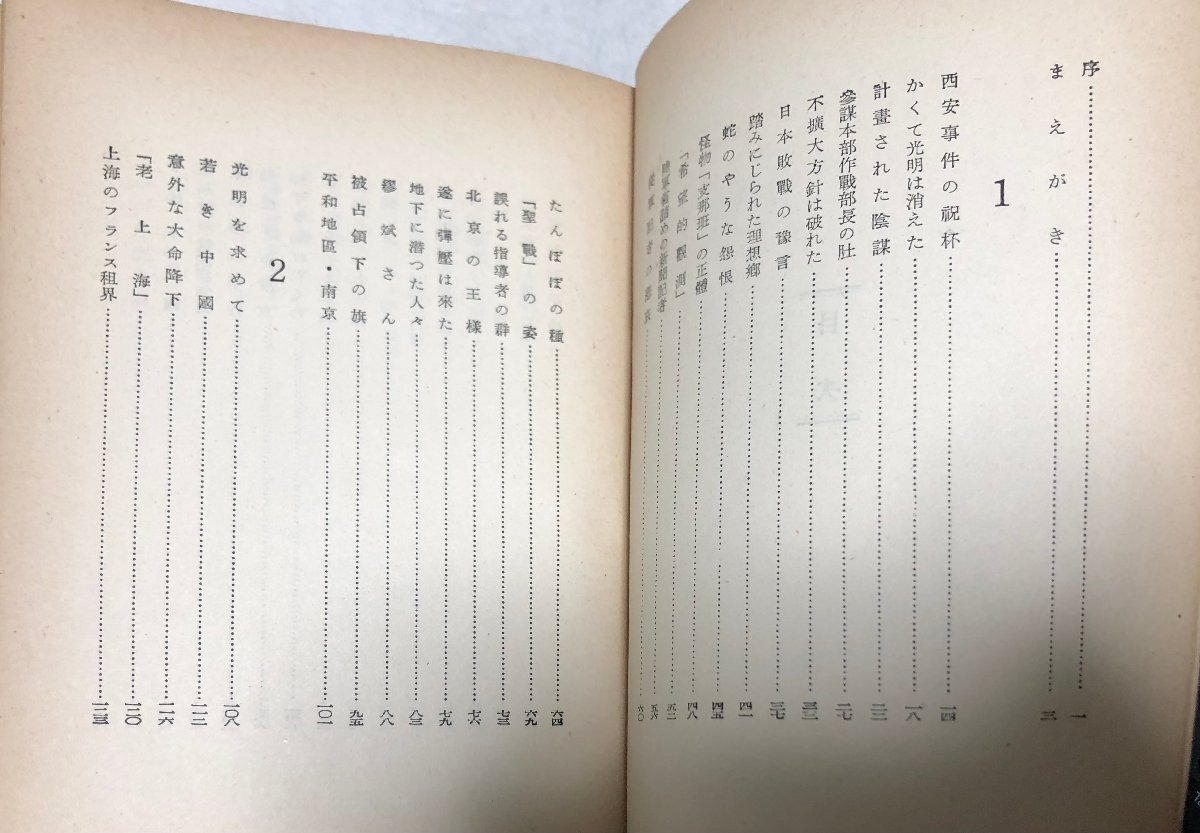 序……一
まえがき……三
1
西安事件の祝杯……一四
かくて光明は消えた……一八
計畫された陰謀……二二
參謀本部作戰部長の肚……二七
不擴大方針は破れた……三三
日本敗戰の豫言……三七
踏みにじられた理想郷……四一
蛇のやうな怨恨……四五
怪物「支那班」の正體……四八
「希望的觀測」……五二
陸軍省詰めの新聞記者……五六
從軍記者の……六〇
たんぽぽの種……六四
「聖戰」の姿……六九
誤れる指導者の群……七三
北京の王樣……七六
遂に彈壓は來た……七九
地下に潜つた人々……八三
繆斌さん……八八
被占領下の旗……九五
平和地區・南京……一〇一
2
光明を求めて……一〇八
若き中國……一一二
意外な大命降下……一一六
「老上海」……一二〇
上海のフランス租界……一二三